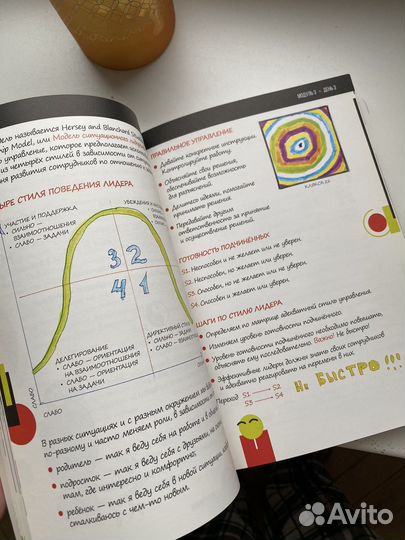 дель называется Hersey and Blanchard
hip Model, или Модель ситуационного
о управление, которое предполагает
из четырёх стилей в зависимости от
ня развития сотрудников по отношению к
ЫРЕ СТИЛЯ ПОВЕДЕНИЯ ЛИДЕРА
УЧАСТИЕ И ПОДДЕРЖКА
• СИЛЬНО —
ВЗАИМООТНОШЕНИЯ
• СЛАБО — ЗАДАЧИ
УБЕЖДЕНИЕ
3 2
4 1
ДЕЛЕГИРОВАНИЕ
• СЛАБО — ОРИЕНТАЦИЯ
НА ВЗАИМООТНОШЕНИЯ
• СЛАБО — ОРИЕНТАЦИЯ
НА ЗАДАЧИ
ДИРЕКТИВНЫЙ
• СИЛЬНО —
• СЛАБО —
СЛАБО
СЛАБО
В разных ситуациях и с разным окружением
по-разному и часто меняем роли, в зависимости
• родитель — так я веду себя на работе и в
• подросток — так я веду себя с друзьями, на
там, где интересно и комфортно;
• ребёнок — так я веду себя в новой ситуации,
сталкиваюсь с чем-то новым.
МОДУЛЬ 3 - ДЕНЬ 3
ПРАВИЛЬНОЕ УПРАВЛЕНИЕ
• Давайте конкретные инструкции.
Контролируйте работу.
• Объясняйте свои решения,
обеспечивайте возможность
для разъяснений.
• Делитесь идеями, помогайте
принимать решения.
• Передавайте другим
ответственность за принятие
и осуществление решений.
КЛЯКСА.КК
ГОТОВНОСТЬ ПОДЧИНЁННЫХ
S1. Неспособен и не желает или не уверен.
S2. Неспособен, но желает или уверен.
S3. Способен, но не желает или не уверен.
S4. Способен и желает или уверен.
ШАГИ ПО СТИЛЮ ЛИДЕРА
• Определяем по матрице адекватный стиль управления.
• Изменяем уровень готовности подчинённого.
• Уровень готовности подчинённого необходимо повышать,
объясняйте ему последовательно. Важно! Не быстро!
• Эффективные лидеры должны знать своих сотрудников
и адекватно реагировать на перемены в них.
Переход S1 → S2
S3 → S4
НЕ БЫСТРО!!!
Avito